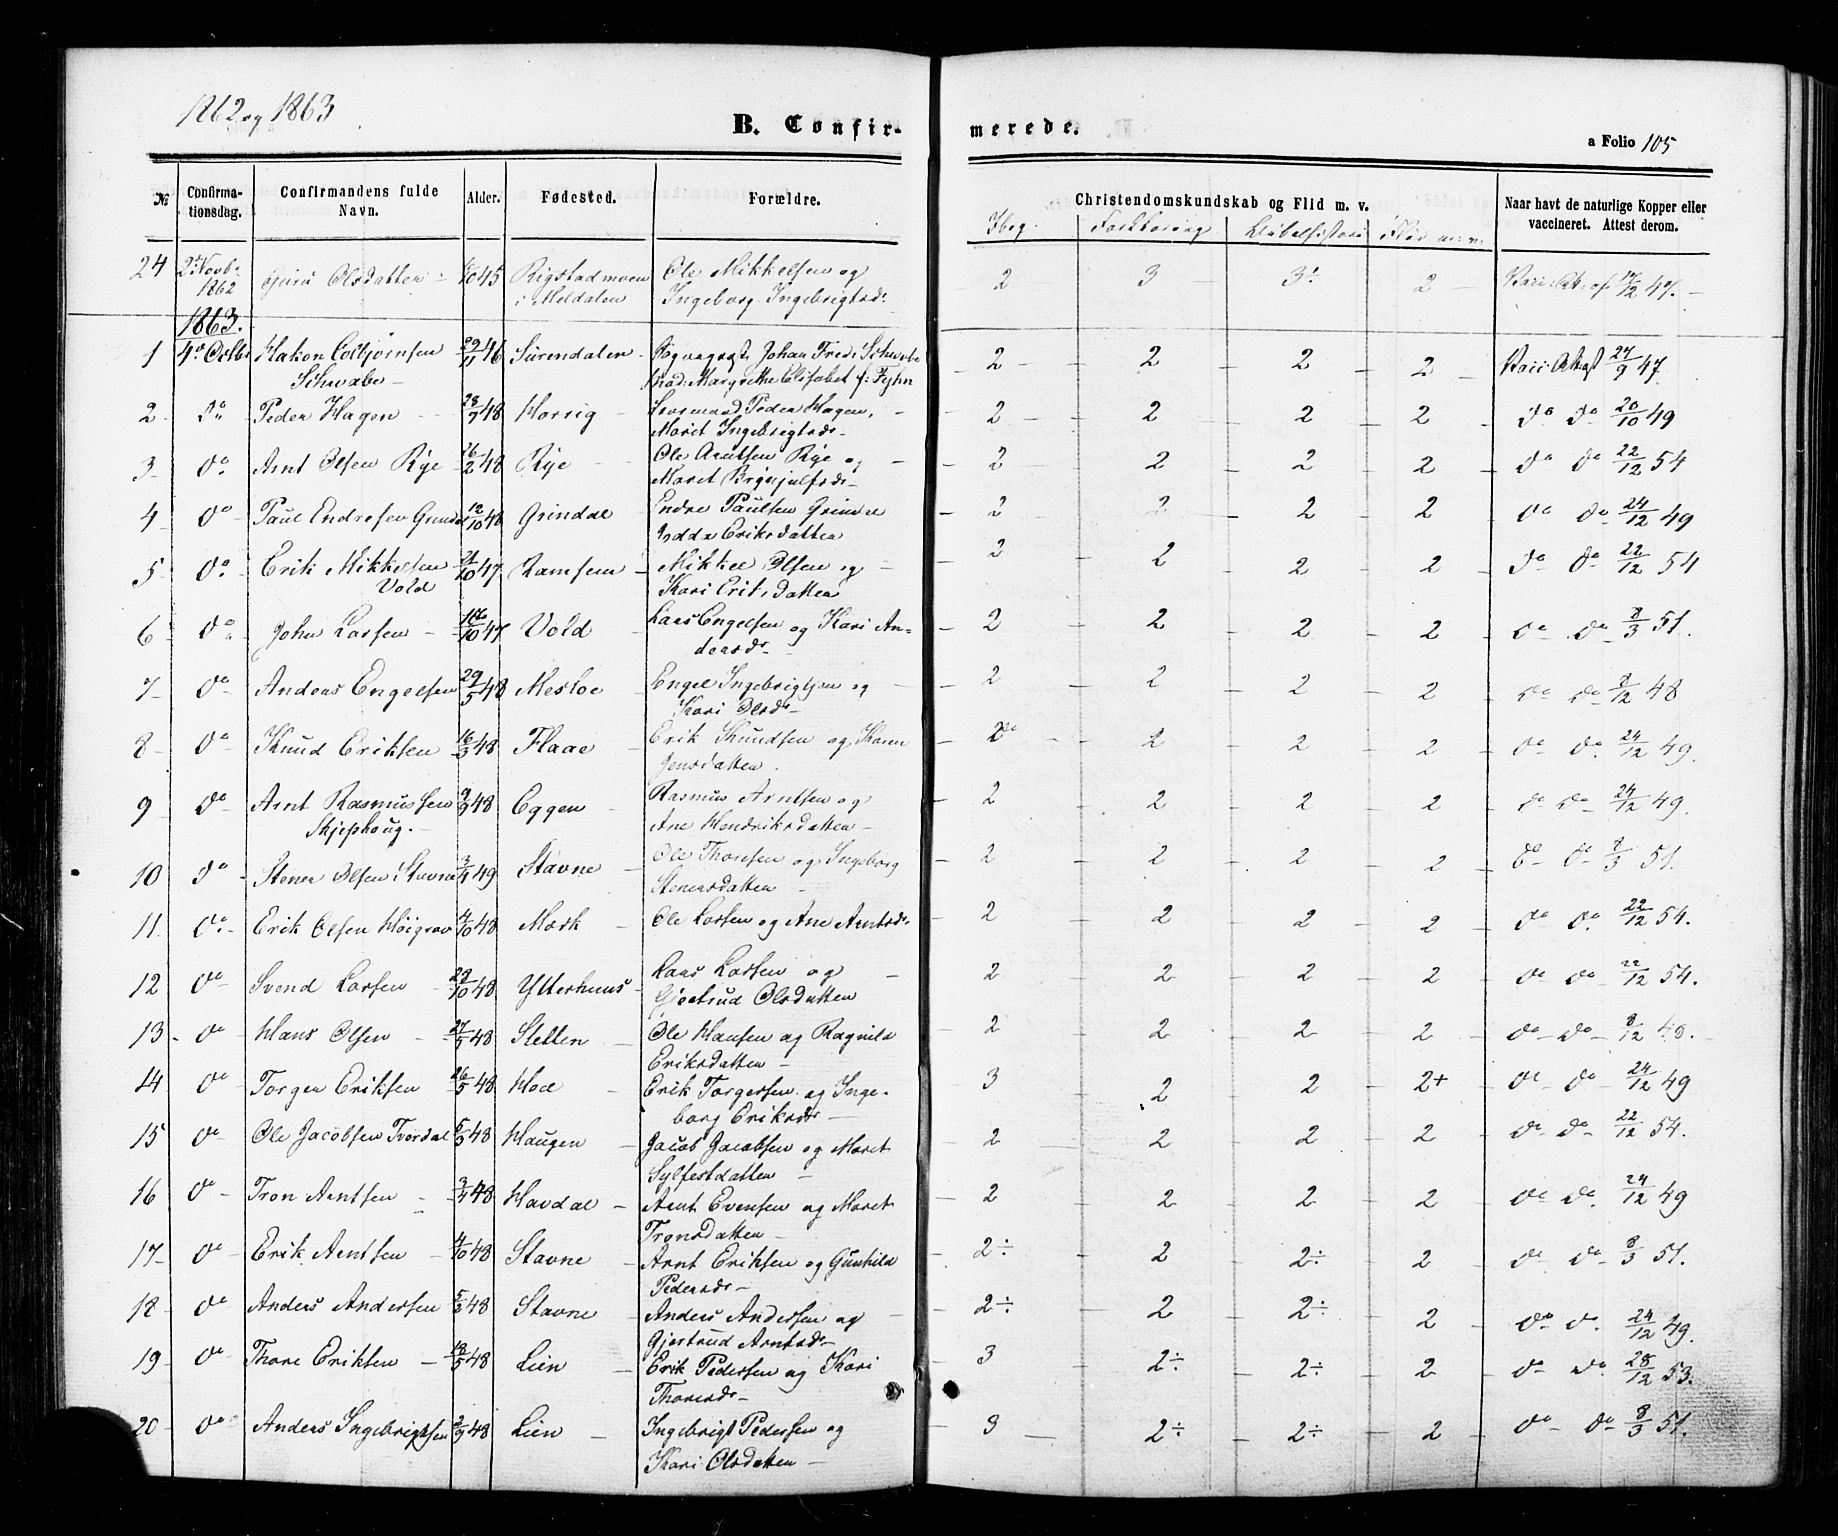 1862 og 1863
B. Confirmerede.
a Folio 105
№ | Confirmationsdag. | Confirmandens fulde Navn. | Alder. | Fødested. | Forældre. | Christendomskundskab og Flid m. v. | Naar havt de naturlige Kopper eller vaccineret. Attest derom.
24 | 2 Novb. 1862 | Guru Olsdatter | 45 | Rigstadmoen i Meldalen | Ole Mikkelsen og Ingeborg Ingebrigtsd. | 2 | 3 | 3÷ | 2 | Vacc: Att. af 12/12 47.
1863.
1 | 4o Octb. | Hakon Colbjørnsen Schwabe | 29/11 46 | Surendalen | Johan Fred: Schwabe Mad: Margrethe Elisabet f: Fyhn | 2 | 2 | 2 | 2 | Vacc: Attest 27/9 47.
2 | do | Peder Hagen | 28/9 48 | Horrig | Peder Hagen, Maret Ingebrigtsdr | 2 | 2 | 2 | 2 | do do 20/10 49
3 | do | Arnt Olsen Rye | 16/2 48 | Rye | Ole Arntsen Rye og Maret Brynjulfsdr | 2 | 2 | 2 | 2 | do do 22/12 54
4 | do | Paul Endresen Grindal | 12/10 48 | Grindal | Endre Paulsen Grindal Eriksdatter | 2 | 2 | 2 | 2 | do do 24/12 49
5 | do | Erik Mikkelsen Vold | 21/10 47 | Ramsem | Mikkel Olsen og Kari Eriksdatter | 2 | 2 | 2 | 2 | do do 22/12 54
6 | do | John Larsen | 16/10 47 | Vold | Lars Engelsen og Kari Andersdr | 2 | 2 | 2 | 2 | do do 8/3 51.
7 | do | Anders Engelsen | 29/5 48 | Mesloe | Engel Ingebrigtsen og Kari Olsdr | 2 | 2 | 2 | 2 | do do 8/12 48
8 | do | Knud Eriksen | 16/3 48 | Flaae | Erik Knudsen og Karen Jensdatter. | 2 | 2 | 2 | do do 24/12 49.
9 | do | Arnt Rasmussen Skjephoug. | 9/9 48 | Eggen | Rasmus Arntsen og Ane Hendriksdatter | 2 | 2 | 2 | 2 | do do 24/12 49.
10 | do | Stener Olsen Stavne | 3/1 49 | Stavne | Ole Thoresen og Ingeborg Stenersdatter | 2 | 2 | 2 | 2 | do do 8/3 51.
11 | do | Erik Olsen Høigrav | 4/10 48 | Mærk | Ole Larsen og Ane Arntsdr | 2 | 2 | 2 | 2 | do do 22/12 54.
12 | do | Svend Larsen | 29/10 48 | Ytterhuus | Lars Larsen og Gjertrud Olsdatter | 2 | 2 | 2 | 2 | do do 22/12 54.
13 | do | Hans Olsen | 27/5 48 | Sletten | Ole Hansen og Ragnild Eriksdatter | 2 | 2 | 2 | 2 | do do 8/12 48.
14 | do | Torger Eriksen | 26/5 48 | Hoel | Erik Torgersen og Ingeborg Eriksdr | 3 | 2 | 2 | 2+ | do do 24/12 49
15 | do | Ole Jacobsen Tverdal | 5/9 48 | Haugen | Jacob Jacobsen og Maret Sylfestdatter | 2 | 2 | 2 | 2 | do do 22/12 54.
16 | do | Tron Arntsen | 3/4 48 | Havdal | Arnt Evensen og Maret Tronsdatter | 2 | 2 | 2 | 2 | do do 24/12 49
17 | do | Erik Arntsen | 4/10 48 | Stavne | Arnt Eriksen og Gunhild Pedersdr | 2÷ | 2 | 2÷ | 2 | do do 8/3 51.
18 | do | Anders Andersen | 5/3 48 | Stavne | Anders Andersen og Gjertrud Arntsdr | 2÷ | 2 | 2÷ | 2 | do do 24/12 49.
19 | do | Thore Eriksen | 18/5 48 | Lien | Erik Pedersen og Kari Thoresdr | 3 | 2÷ | 2÷ | 2 | do do 28/12 53.
20 | do | Anders Ingebrigtsen | 2/9 48 | Lien | Ingebrigt Pedersen og Kari Olsdatter | 3 | 2÷ | 2÷ | 2 | do do 8/3 51.